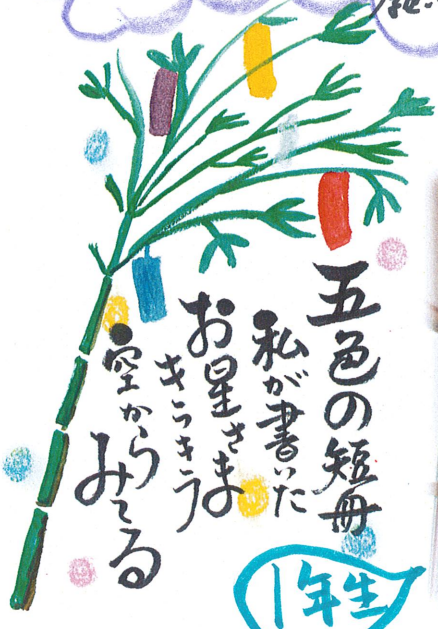 五色の短冊
私が書いた
お星さま
きらきら
空からみてる
1年生